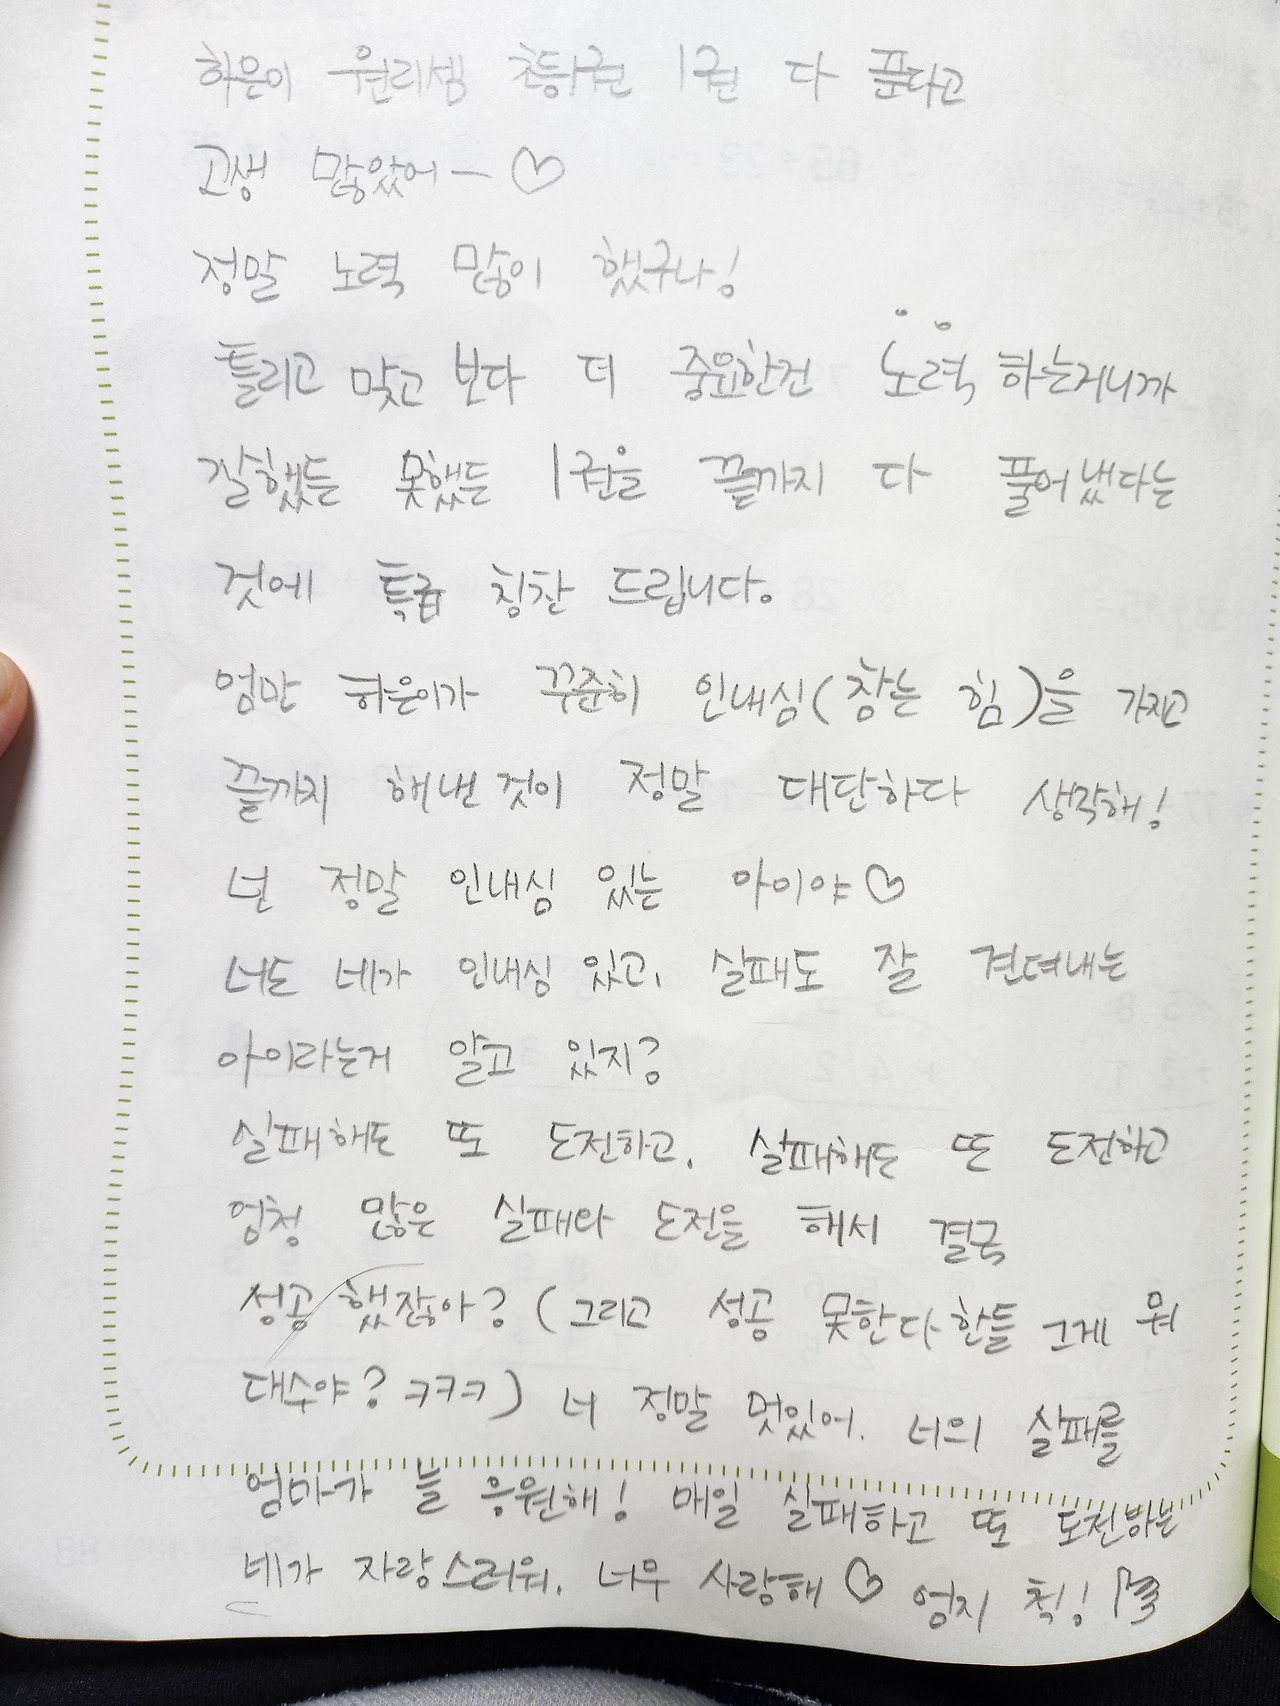 하은이 원리셈 초등1권 1권 다 푼다고
고생 많았어~ ♡
정말 노력 많이 했구나!
틀리고 맞고 보다 더 중요한건 노력 하는거니까
잘했든 못했든 1권을 끝까지 다 풀어냈다는
것에 특급 칭찬 드립니다.
엄만 하은이가 꾸준히 인내심(참는 힘)을 가지고
끝까지 해낸 것이 정말 대단하다 생각해!
넌 정말 인내심 있는 아이야♡
너도 네가 인내심 있고, 실패도 잘 견뎌내는
아이라는거 알고 있지?
실패해도 또 도전하고, 실패해도 또 도전하고
엄청 많은 실패와 도전을 해서 결국
성공했잖아? (그리고 성공 못한다한들 그게 뭐
대수야? ㅋㅋㅋ) 너 정말 멋있어. 너의 실패를
엄마가 늘 응원해! 매일 실패하고 또 도전하는
네가 자랑스러워. 너무 사랑해♡ 엄지 척!